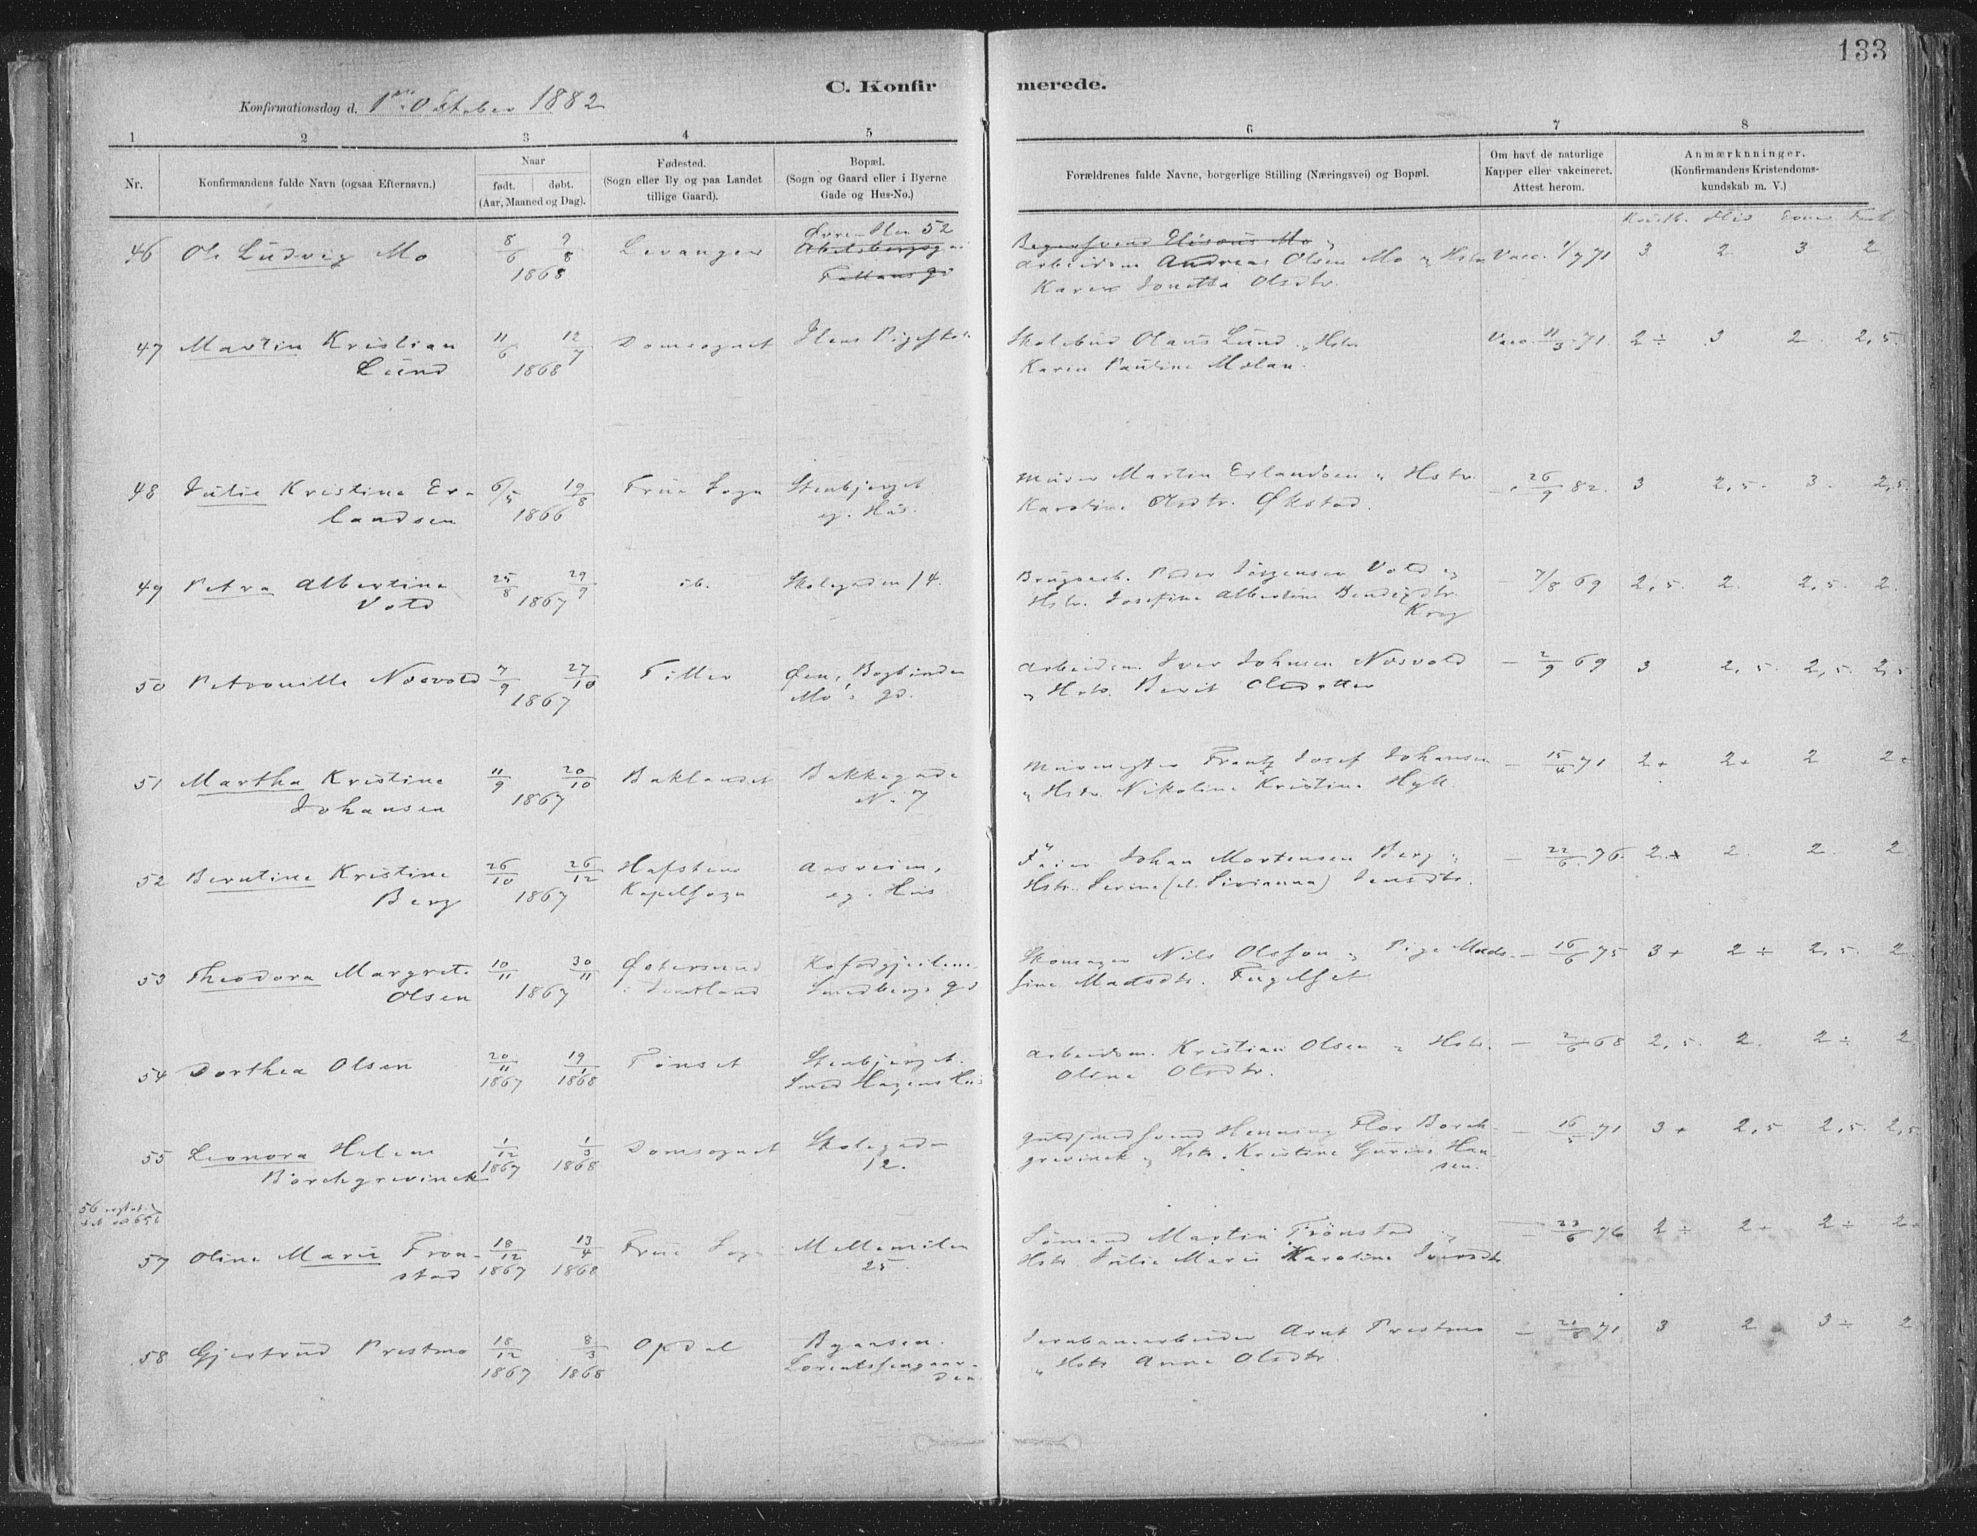 133
C. Konfirmerede.
Konfirmationsdag d. 1ste Oktober 1882
1 2 3 4 5 6 7 8
Nr.
Konfirmandens fulde Navn (ogsaa Efternavn.)
Naar
født. døbt.
(Aar, Maaned og Dag).
Fødested.
(Sogn eller By og paa Landet
tillige Gaard).
Bopæl.
(Sogn og Gaard eller i Byerne
Gade og Hus-No.)
Forældrenes fulde Navne, borgerlige Stilling (Næringsvei) og Bopæl.
Om havt de naturlige
Kapper eller vakcineret.
Attest herom.
Anmærknninger.
(Konfirmandens Kristendoms-
kundskab m. V.)
Flid
46 Ole Ludvig Mo 8/6 9/8 1868 Levanger Øvre Ilen 52
Elisæus Mo
Arbeidsm. Andreas Olsen Mo Hstr. Vacc. 1/7 71 3 2 3 2
Karen Jonetta Olsdtr.
47 Martin Kristian 11/6 12/7 Domsognet Ilens Pigeskole Skolebud Olaus Lund Hstr. Vacc. 11/3 71. 2÷ 3 2 2,5
Lund 1868 Karen Pauline Molan.
48 Julie Kristine Er- 6/5 19/8 Frue Sogn Stenbjerget Murer Martin Erlandsen Hstr. 26/9 82. 3 2,5. 3. 2,5.
landsen 1866 eg. Hus. Karoline Olsdtr. Økstad.
49 Petra Albertine 25/8 29/9 ib. Skolegaden 14. Brugsarb. Peder Jörgensen Vold og 7/8 69 2,5. 2. 2,5. 2.
Vold 1867 Hstr. Josefine Albertine Bendixdtr.
Krog
50 Petronille Nosvold 7/9 27/10 Tiller Øen, Bogbinder Arbeidsm. Iver Johnsen Nosvold – 2/9 69 3 2,5. 2,5. 2,5
1867 Mo's gd. Hstr. Berit Olsdatter
51 Martha Kristine 11/9 20/10 Baklandet Bakkegade Murmester Frantz Josef Johansen – 15/4 71 2+ 2+ 2 2÷
Johansen 1867 N. 7 Hstr. Nikoline Kristine Hyll.
52 Berntine Kristine 26/10 26/12 Hafstens Aasveien, Johan Mortensen Berg – 22/6 76. 2+ 2. 2. 2
Berg 1867 Kapelsogn eg. Hus. Hstr. Serine (el. Sivianna) Jensdtr.
53 Theodora Margrete 10/11 30/11 Østersund Skomager Nils Olsson Pige Mads- – 16/6 75 3+ 2÷ 2,5. 2
Olsen 1867 i Jemtland Smedbergs gd sine Madsdtr.
54 Dorthea Olsen 20/11 1867 19/1 1868 Tönset Stenbjerget. Arbeidsm. Kristian Olsen Hstr. – 2/6 68 2,5. 2. 2÷ 2
Smed Hagens Hus Oline Olsdtr.
55 Leonora Helene 1/12 1867 1/3 1868 Domsognet Skolegade Guldsmedsvend Henning Flor Borch- – 16/5 71 3+ 2,5 2,5. 2,5
Borchgrevinck 12. grevinck Hstr. Kristine Gurine Han-
sen.
56
57 Oline Marie Tron- 18/12 1867 13/4 1868 Frue Sogn Mellemilen Sömand Martin Trönstad – 23/6 76 2÷ 2+ 2÷ 2÷
stad 25. Hstr. Julie Marie Karoline Iversdtr.
58 Gjertrud Prestmo 18/12 1867 8/3 1868 Opdal Byaasen. Jernbanearbeider Arnt Prestmo – 21/8 71 3 2 3÷ 2
Lorentssengaar-
den. Hstr. Anne Olsdtr